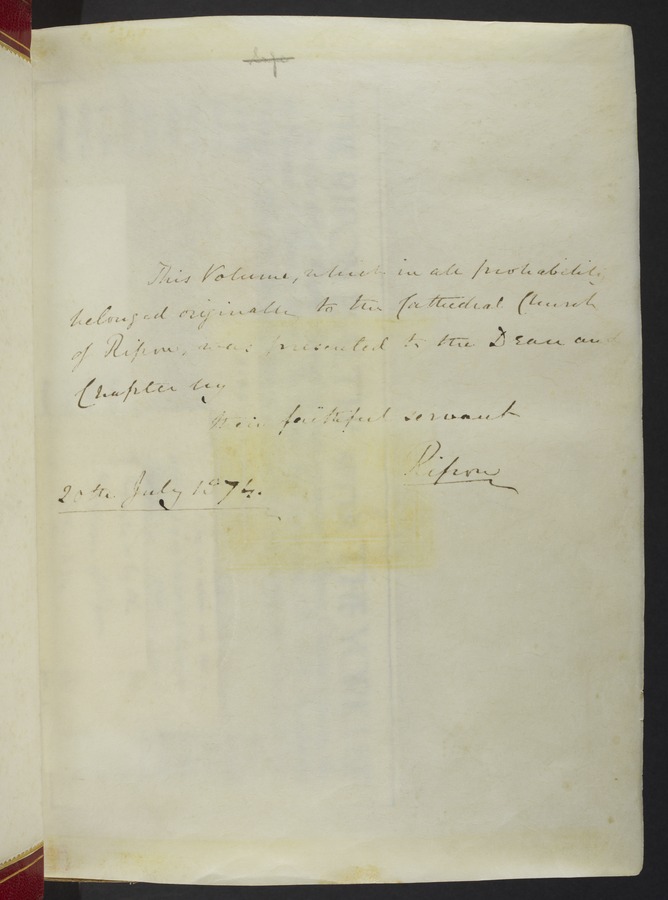 This Volume, which in all probability
belonged originally to the Cathedral Church
of Ripon, was presented to the Dean and
Chapter by
their faithful servant
Ripon
July 1874.